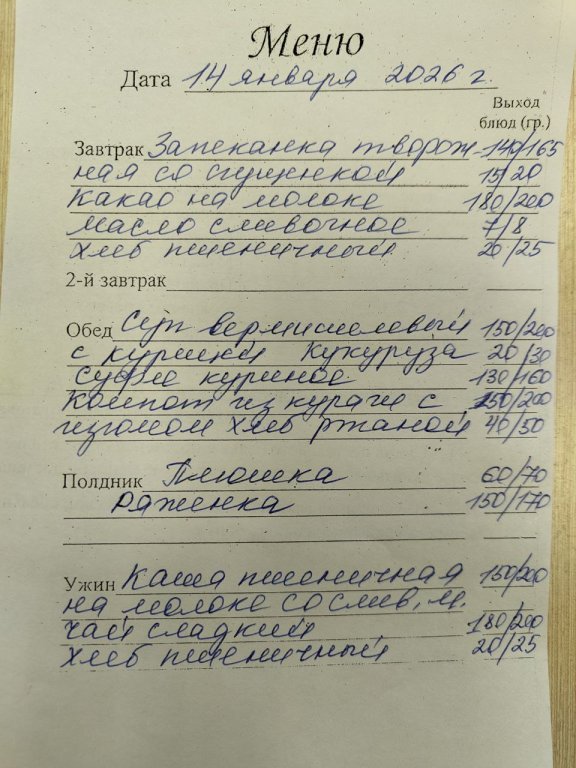 Меню
Дата 14 января 2026 г.
Выход
блюд (гр.)
Завтрак Запеканка творож- 140/165
ная со сгущенкой 15/20
Какао на молоке 180/200
масло сливочное 7/8
хлеб пшеничный 20/25
2-й завтрак
Обед Суп вермишелевый 150/200
с курицей кукуруза 20/30
Суфле куриное 130/160
Компот из кураги с 150/200
изюмом хлеб ржаной 40/50
Полдник Плюшка 60/70
Ряженка 150/170
Ужин Каша пшеничная 150/200
на молоке со слив. м.
чай сладкий 180/200
хлеб пшеничный 20/25